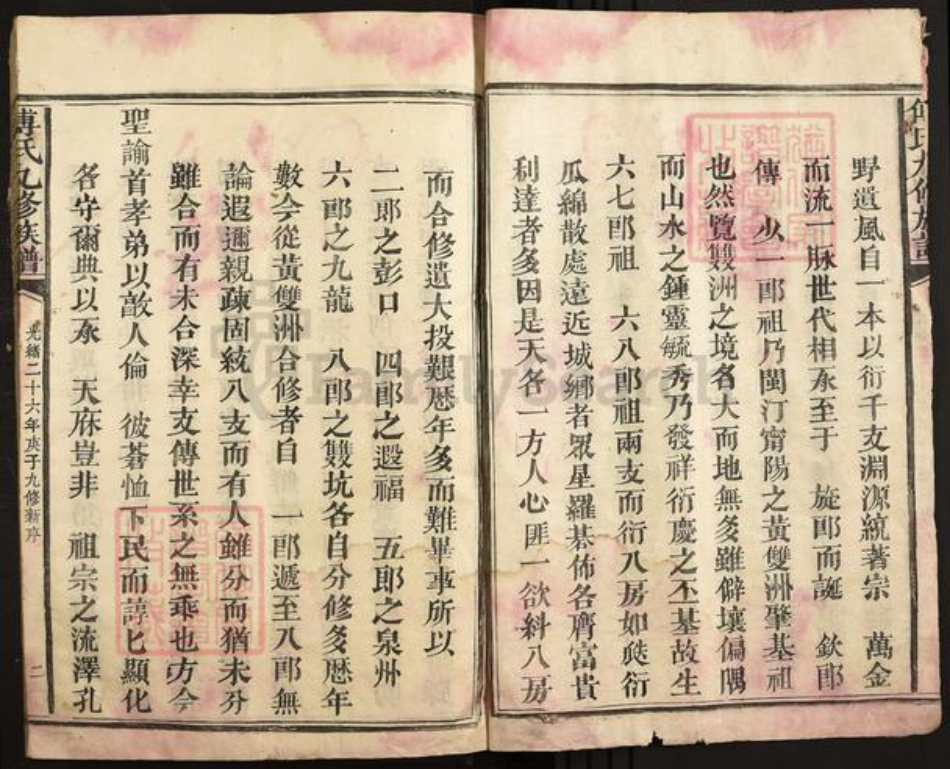 傅氏九修族譜
野遺風自一本以衍千支淵源統著宗 萬金
而流一脉世代相承至于 旋郎而誕 欽郎
傳 少一郎祖乃閩汀甯陽之黃雙洲肇基祖
也然覽雙洲之境各大而地無多雖僻壤偏隅
而山水之鍾靈毓秀乃發祥衍慶之丕基故生
六七郎祖 六八郎祖兩支而衍八房如瓞衍
瓜綿散處遠近城鄉者眾星羅碁佈各膺富貴
利達者多因是天各一方人心匪一欲糾八房
而合修遺大投艱歷年多而難畢事所以
二郎之彭口 四郎之遐福 五郎之泉州
六郎之九龍 八郎之雙坑各自分修多歷年
數今從黃雙洲合修者自 一郎遞至八郎無
論遐邇親疎固統八支而有人雖分而猶未分
雖合而有未合深幸支傳世系之無乖也方今
聖諭首孝弟以敦人倫 彼蒼恤下民而諄匕顯化
各守爾典以承 天庥豈非 祖宗之流澤孔
傅氏九修族譜
光緒二十六年庚子九修新序
二
FamilySearch